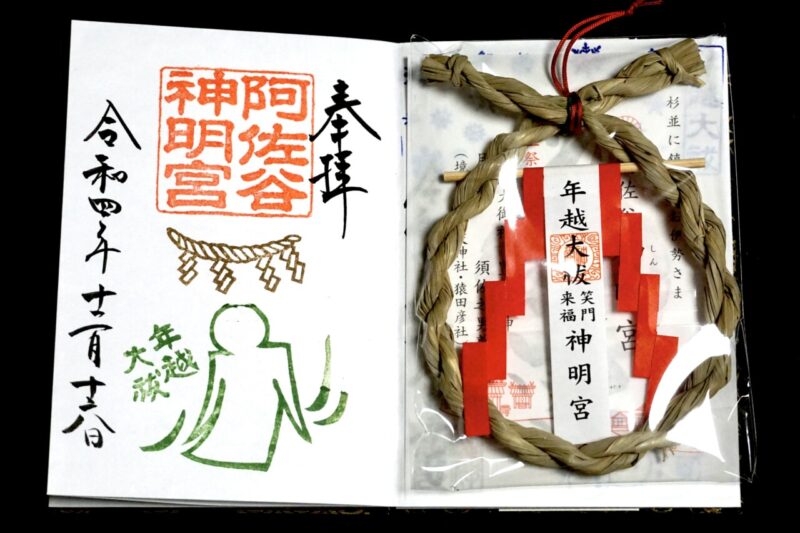 奉拝
阿佐谷
神明宮
令和四年 十二月
年越
大祓
年越大祓
笑門
来福
神明宮
杉並に鎮
伊勢さま
佐谷
しん
宮
須佐
神社・猿田彦社